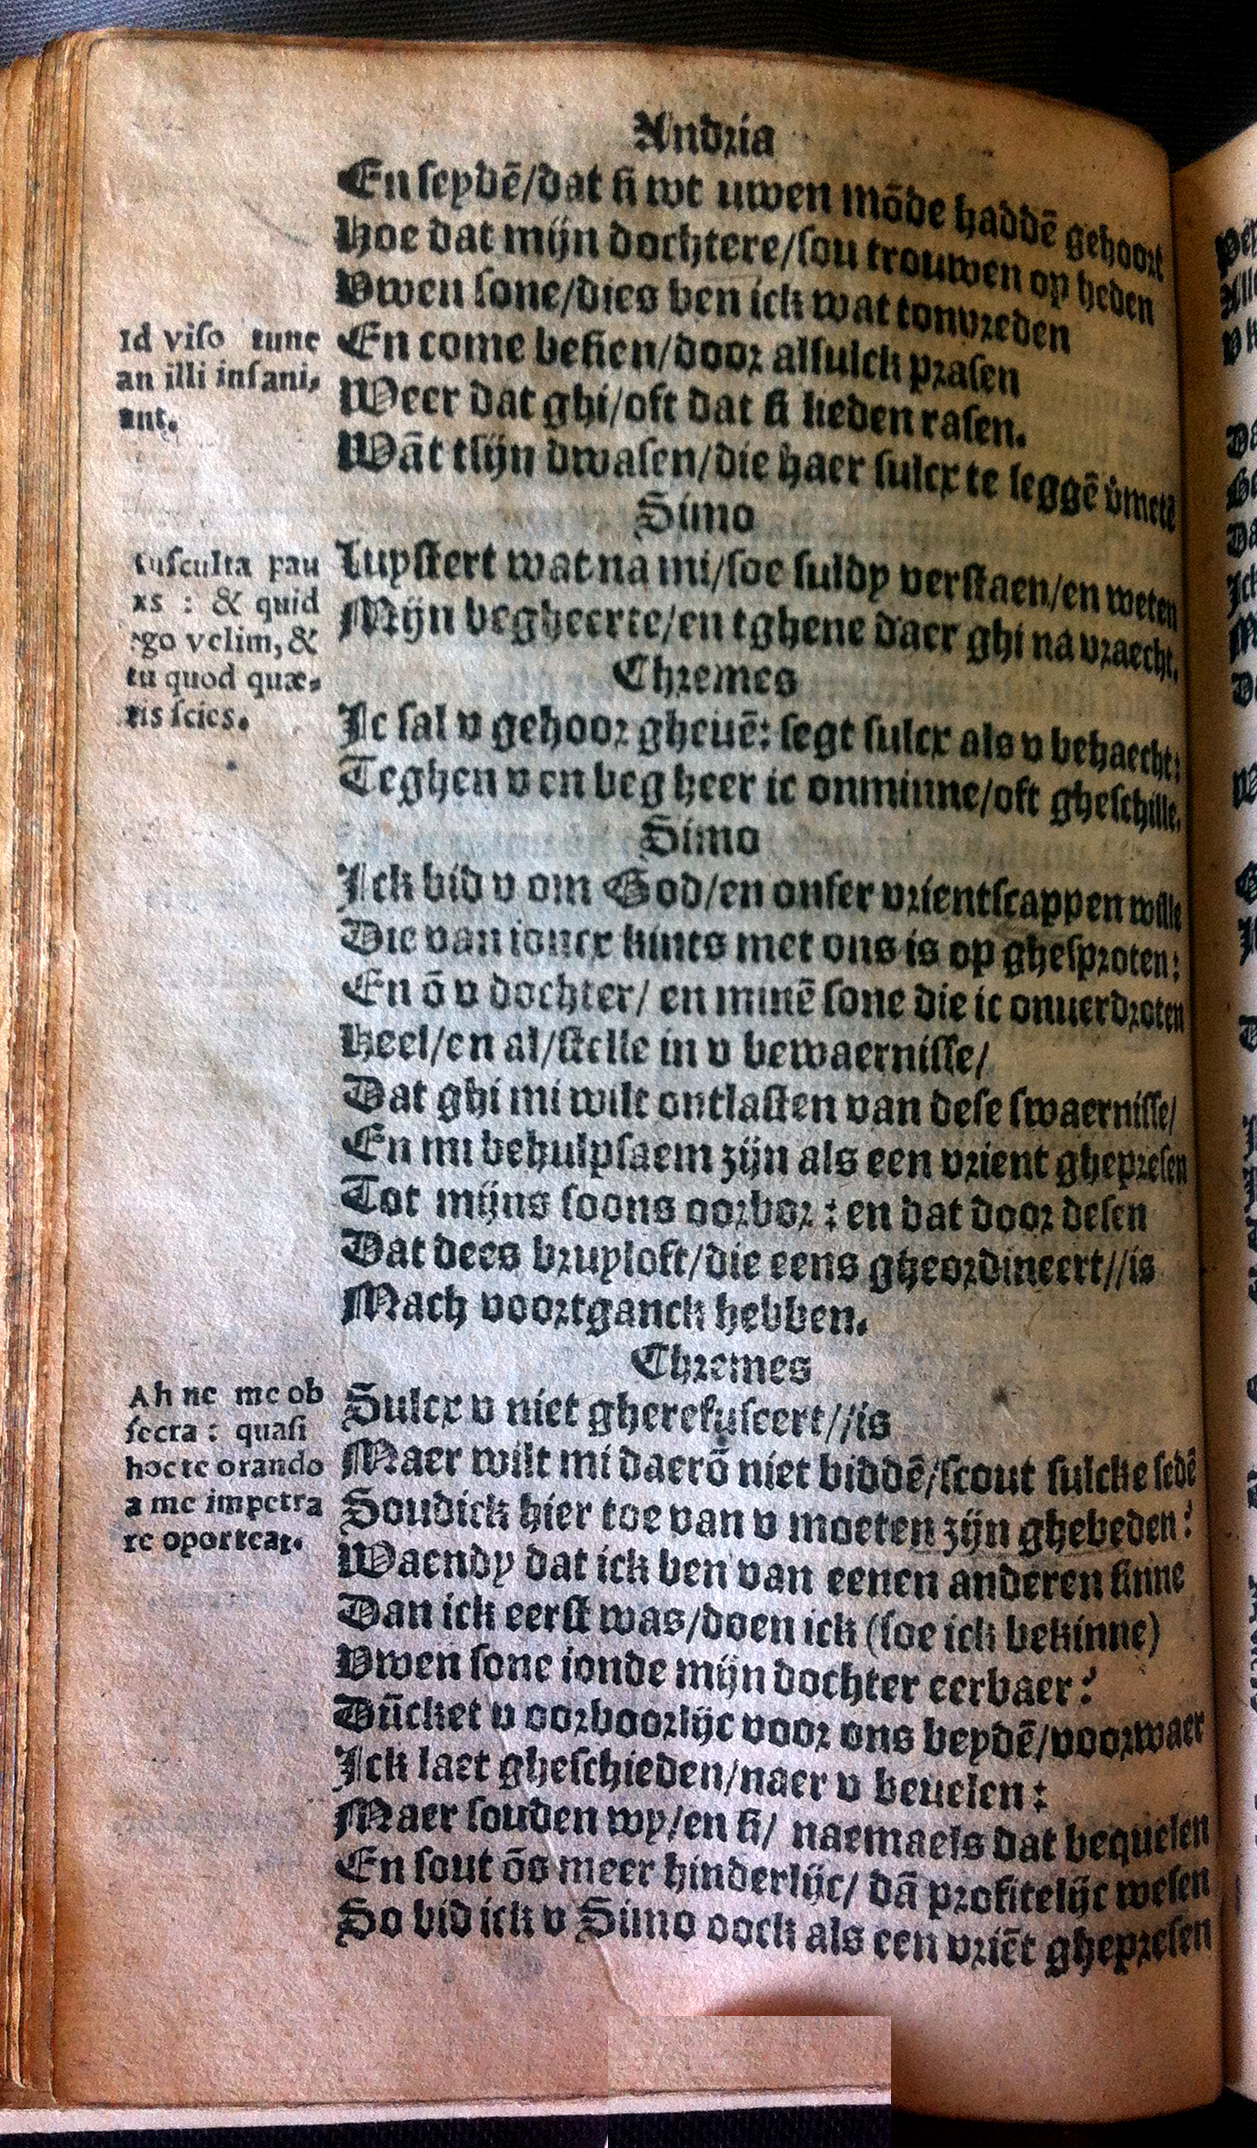 Andria
En seydē/dat si wt uwen mōde haddē gehoort
Hoe dat mijn dochtere/sou trouwen op heden
Vwen sone/dies ben ick wat tonvreden
En come besien/door alsulck prasen
Weer dat ghi/oft dat si lieden rasen.
Wāt tsijn dwasen/die haer sulcx te leggē v̄metē
Id viso tune
an illi insani-
ant.
Simo
Luystert wat na mi/soe suldy verstaen/en weten
Mijn begheerte/en tghene daer ghi na vraecht.
usculta pau
xs : & quid
ego velim, &
tu quod quæ-
ris scies.
Chremes
Ic sal v gehoor gheuē: segt sulcx als v behaecht:
Teghen v en beg heer ic onminne/oft gheschille.
Simo
Ick bid v om God/en onser vrientscappen wille
Die van ioncx kints met ons is op ghesproten:
En ō v dochter/ en minē sone die ic onuerdroten
Heel/en al/stelle in v bewaernisse/
Dat ghi mi wilt ontlasten van dese swaernisse/
En mi behulpsaem zijn als een vrient ghepresen
Tot mijns soons oorbor : en dat door desen
Dat dees bruyloft/die eens gheordineert//is
Mach voortganck hebben.
Chremes
Sulcx v niet gherefuseert//is
Maer wilt mi daerō niet biddē/scout sulcke sedē
Soudick hier toe van v moeten zijn ghebeden?
Waendy dat ick ben van eenen anderen sinne
Dan ick eerst was/doen ick (soe ick bekinne)
Vwen sone ionde mijn dochter eerbaer?
Dūcket v oorboorlijc voor ons beydē/voorwaer
Ick laet gheschieden/naer v beuelen :
Maer souden wy/en si/ naemaels dat bequelen
En sout ōs meer hinderlijc/ dā profitelijc wesen
So bid ick v Simo oock als een vriēt ghepresen
Ah ne me ob
secra : quasi
hoc te orando
a me impetra
re oporteat.